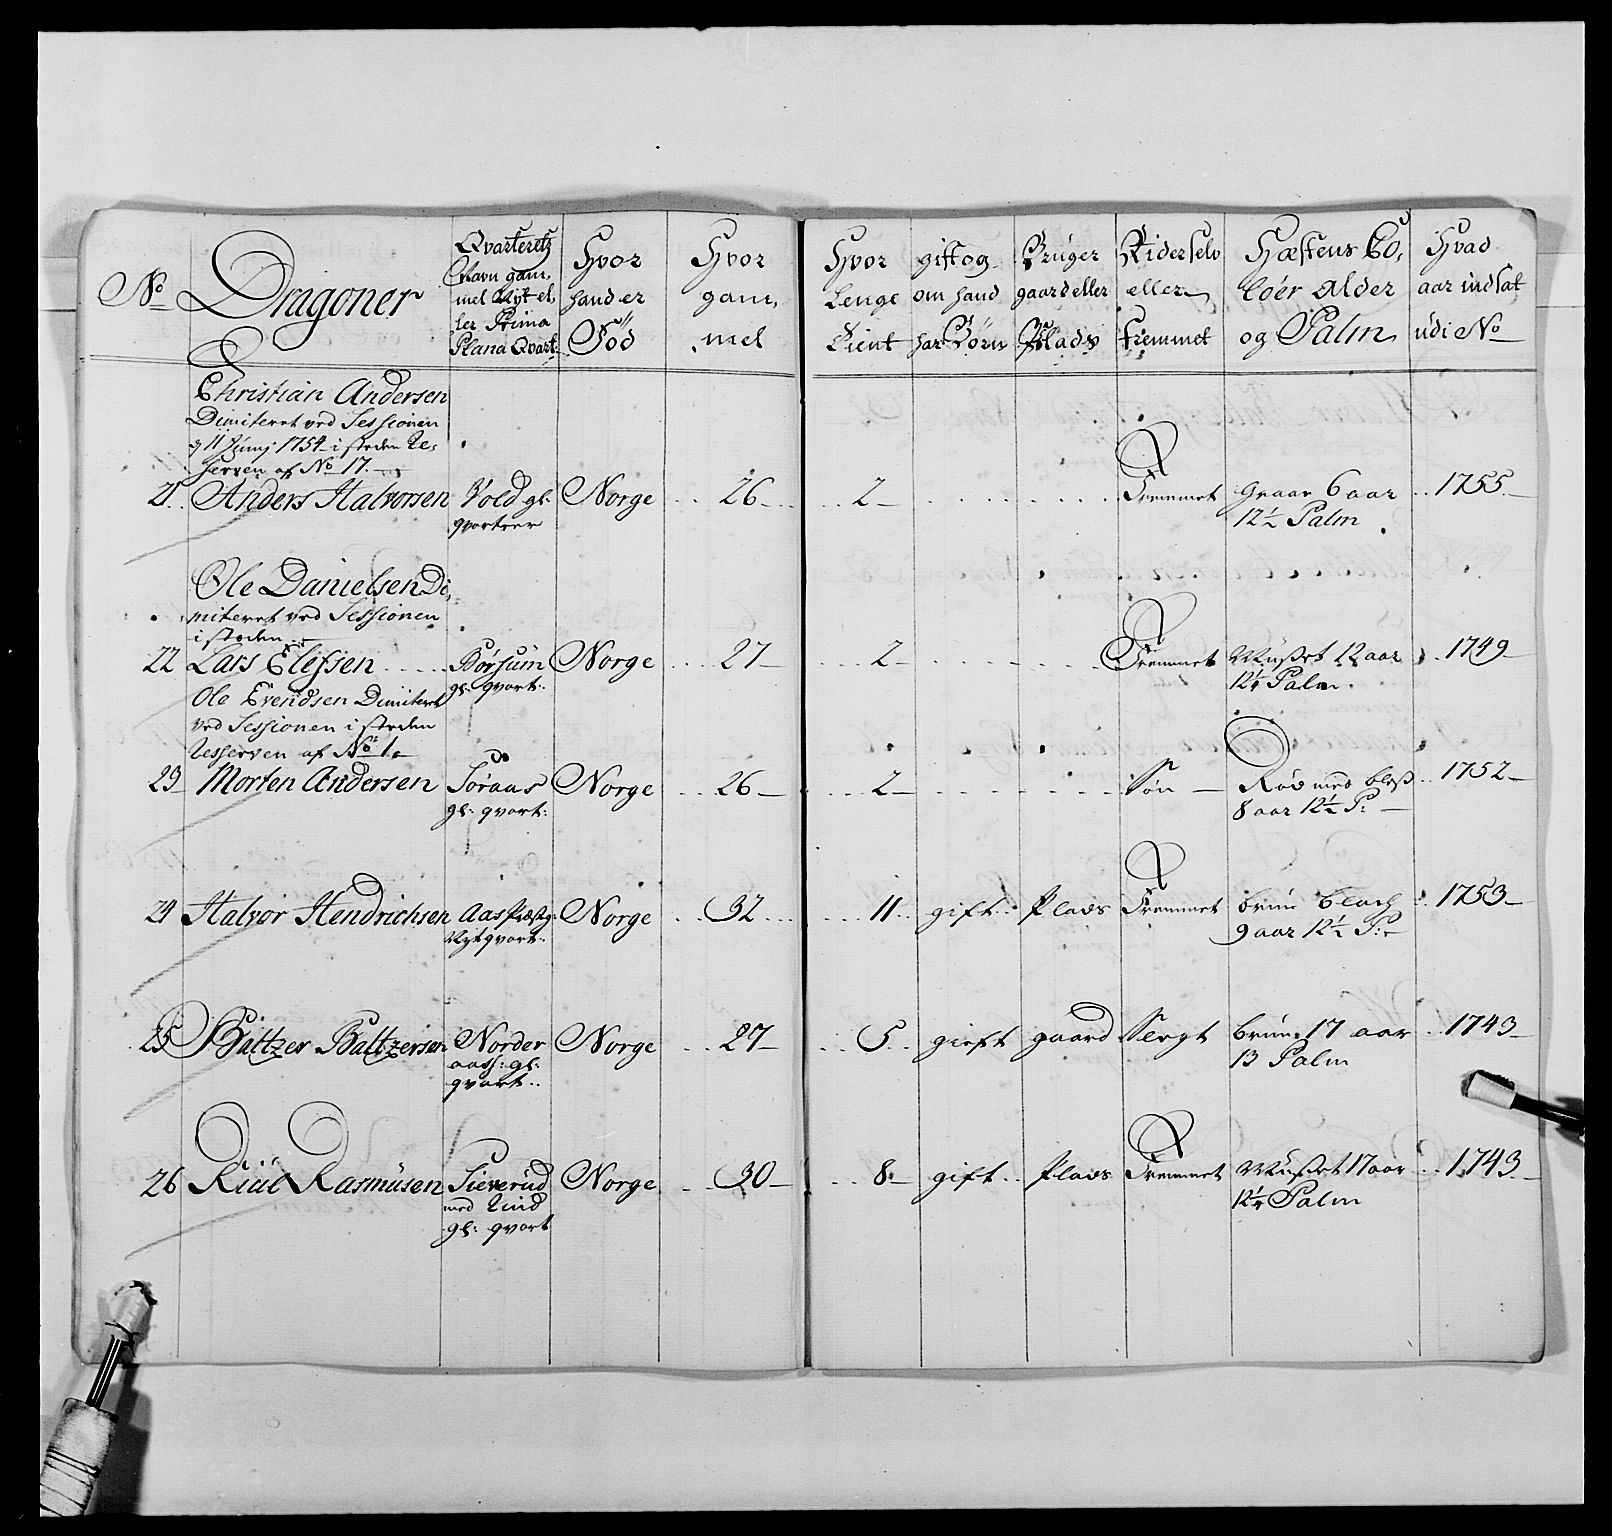 No
Dragoner
Qvarteretz
Navn gam,
mel Nyt el,
ler Prima
Plana Qvart:
Hvor
hand er
Föd
Hvor
gam,
mel
Hvor
Lenge
Tient
gift og
om hand
har Börn
Brüger
gaard eller
Plads
Rider selv
eller
fremmet
Hæstens Co,
löer Alder
og Palm
Hvad
aar indsat
udi No
Christian Andersen
Dimiteret ved Sessionen
d 11 Junij 1754 i steden Re,
serven af No 17.
21. Anders Halvorsen Vold gl: Norge 26 2 Fremmet Graae 6 aar 1755
qvarteer 12½ Palm
Ole Danielsen Di,
miteret ved Sessionen
i steden
22 Lars Elefsen Börsum Norge 27 2 Fremmet Musset 12 aar 1749
gl: qvart: 12¼ Palm.
Ole Evendsen Dimiteret
ved Sessionen i steden
Resserven af No 1.
23 Morten Andersen Söraas Norge 26 2 Sön Röd med bles 1752
gl: qvart: 8 aar 12½ P:
24 Halvor Hendrichsen Aas Præstg: Norge 32 11 gift Plads Fremmet brun black 1753
Nyt qvart: 9 aar 12½ P:
25 Baltzer Baltzersen Norder Norge 27 5 gieft gaard Selvgt brun 17 aar 1743
aash: gl: 13 Palm
qvart:
26 Riül Rasmüsen Sieverud Norge 30 8 gift Plads Fremmet Musset 17 aar 1743
med Lund 12¼ Palm
gl: qvart